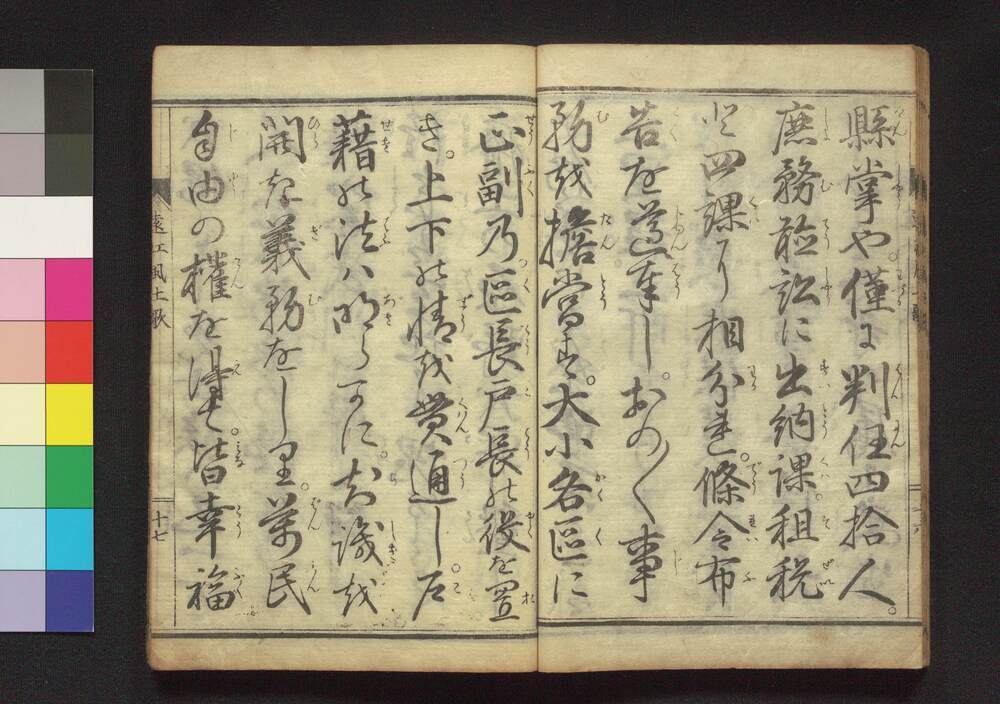 縣掌や。僅に判任四拾人。
庶務聴訟に出納課。租税
と四課に相分れ。條令布
告を遵奉し。おの〱事
務を擔當す。大小各区に
正副乃区長戸長の役を置
き。上下の情を貫通し。戸
籍の法ハ明らかに。知識を
開き義務をしり。萬民
自由の權を得て。皆幸福
遠江風土歌
十七